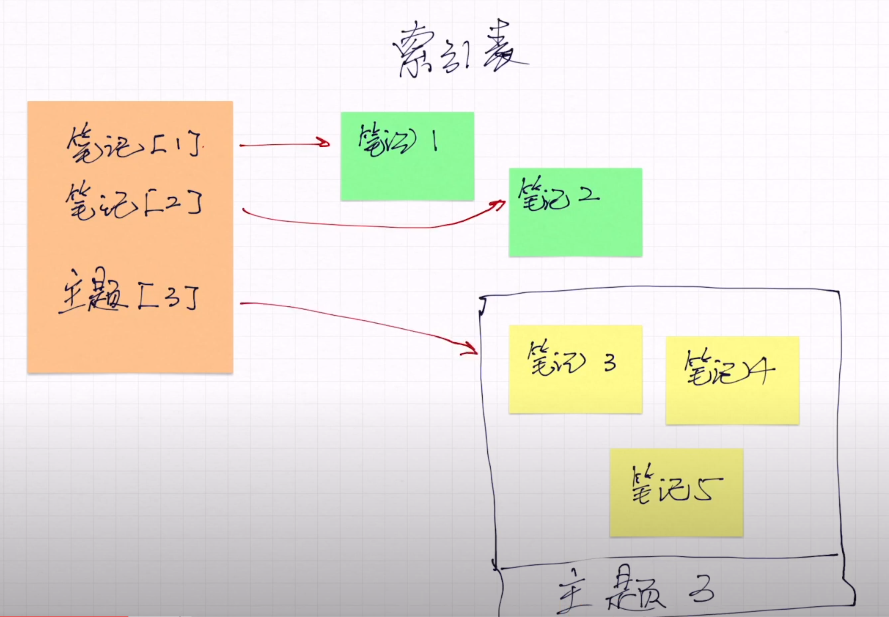 索引表
笔记[1]
笔记[2]
主题[3]
笔记1
笔记2
笔记3
笔记4
笔记5
主题3